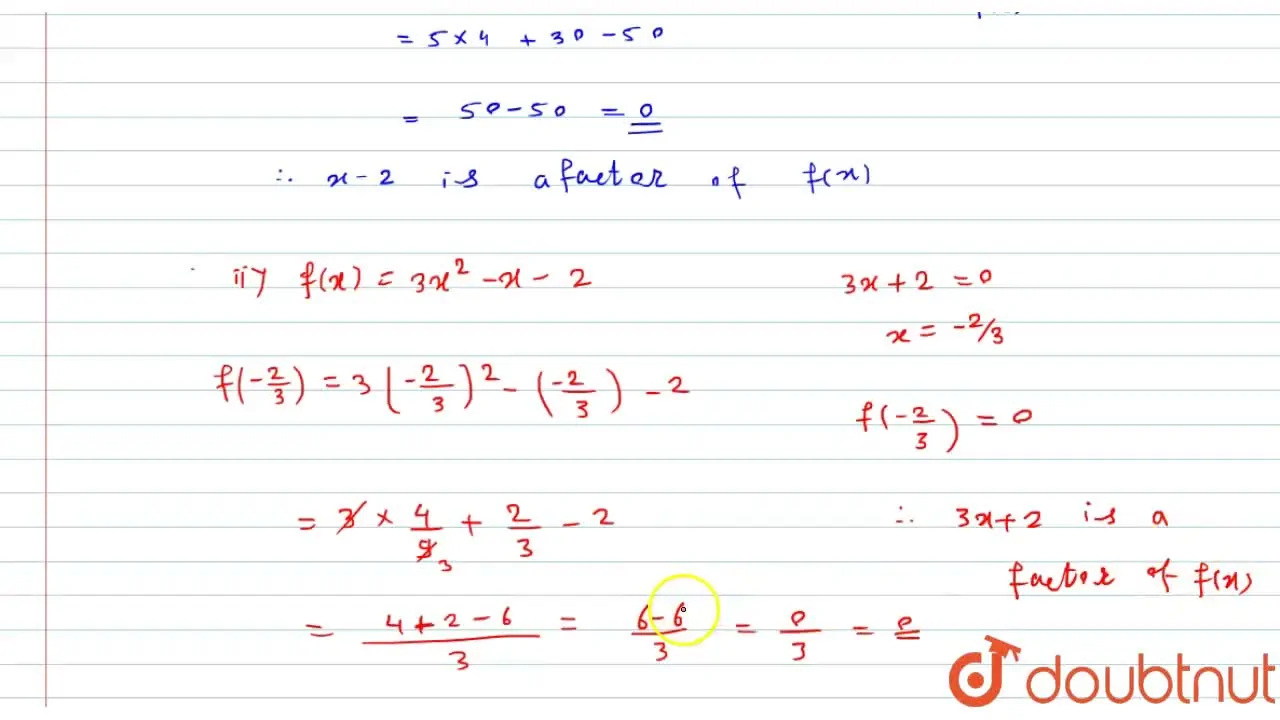 = 5 × 4 + 30 - 50
= 50 - 50 = 0
∴ x - 2 is a factor of f(x)
ii) f(x) = 3x² - x - 2
3x + 2 = 0
x = -2/3
f(-2/3) = 3(-2/3)² - (-2/3) - 2
f(-2/3) = 0
= 3 × 4/9 3 + 2/3 - 2
∴ 3x + 2 is a
factor of f(x)
= 4 + 2 - 6/3 = 6 - 6/3 = 0/3 = 0
doubtnut